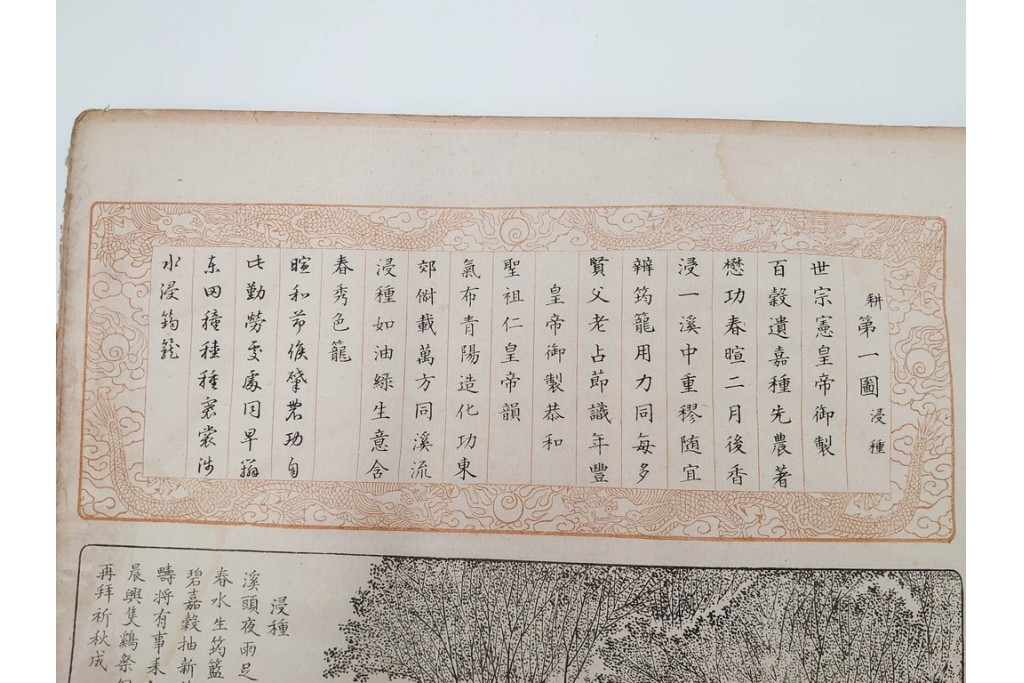 耕第一圖 浸種
世宗憲皇帝御製
百穀遺嘉種先農著
懋功春暄二月後香
浸一溪中重穋随宜
辨筠籠用力同每多
賢父老占節識年豐
皇帝御製恭和
聖祖仁皇帝韻
氣布青陽造化功東
郊俶載萬方同溪流
浸種如油綠生意含
春秀色籠
暄和節候肇農功自
此勤勞處處同早辨
東田穜稑種褰裳涉
水浸筠籠
浸種
溪頭夜雨足
春水生筠籃
碧嘉穀抽新
疇將有事耒
晨興隻鷄祭
再拜祈秋成